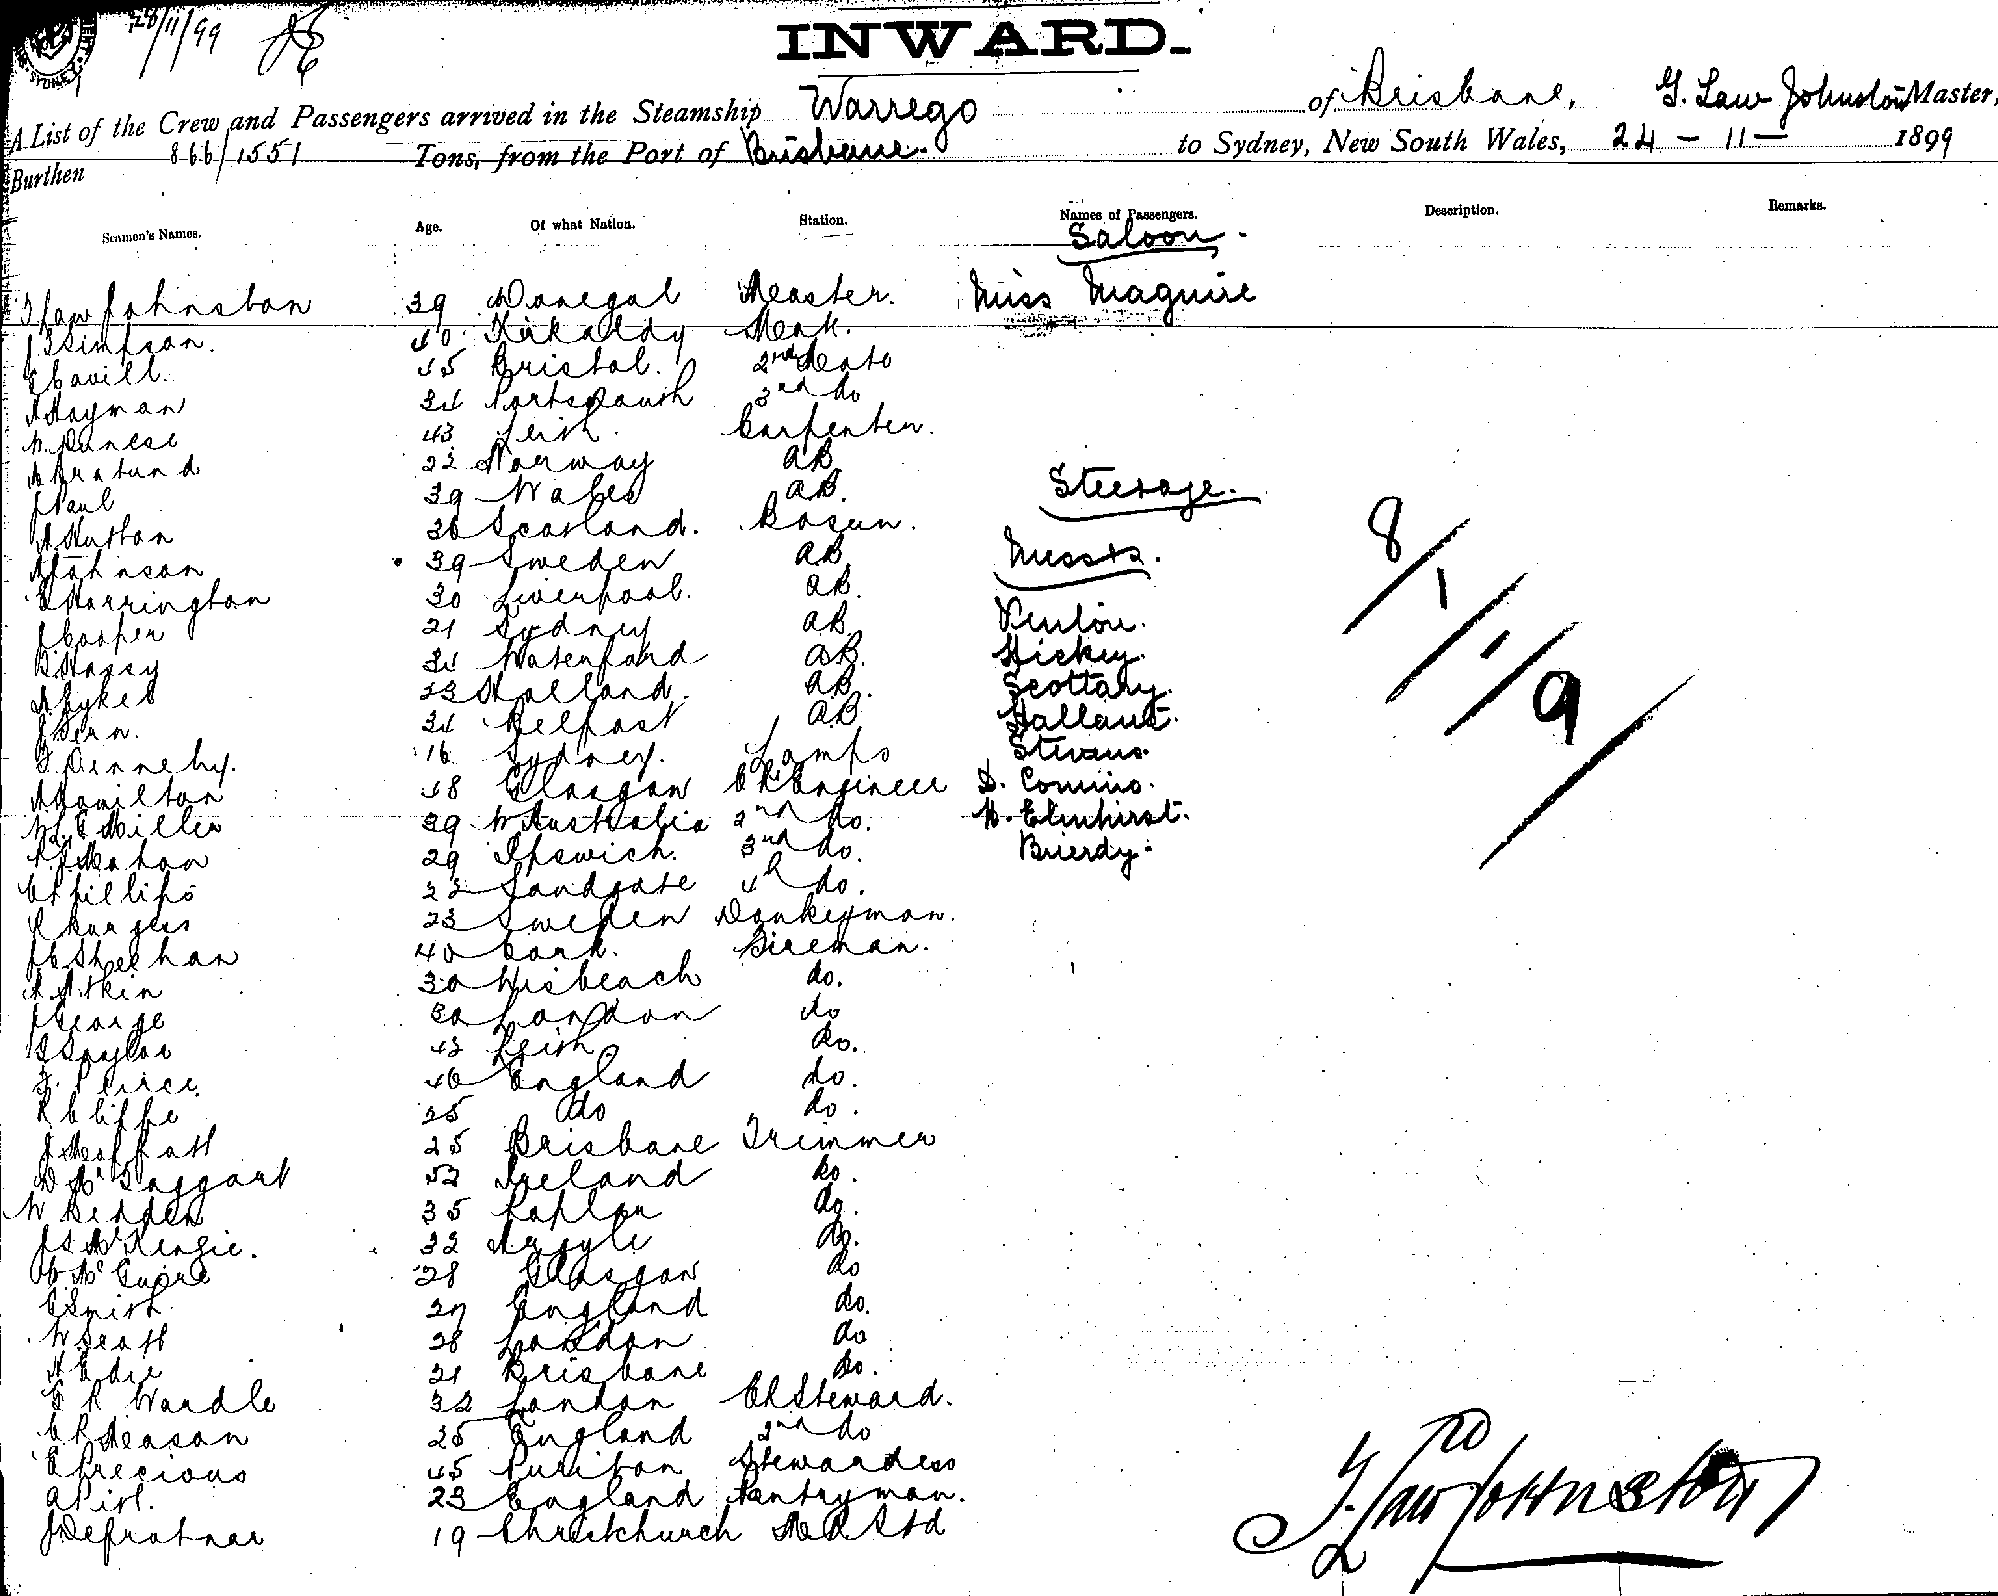 28/11/99
INWARD.
A List of the Crew and Passengers arrived in the Steamship Warrego of Brisbane, G. Law Johnston Master,
Burthen 866/1551 Tons, from the Port of Brisbane. to Sydney, New South Wales, 24 - 11 - 1899
Seamen's Names. Age. Of what Nation. Station. Names of Passengers. Description. Remarks.
Saloon.
G Law Johnston 39 Donegal Master. Miss Maguire
Simpson. 40 Kirkaldy Mate.
Cavill. 45 Bristol. 2nd Mate
Hayman 34 Portsmouth 3rd do
43 Leith. Carpenter.
22 Norway AB
J Paul 39 Wales AB. Steerage.
A Hutton 36 Scotland. Bosun.
Johnson 39 Sweden AB Messrs.
Harrington 30 Liverpool. AB.
J Cooper 21 Sydney AB Venlon.
Hassy 34 Waterford AB. Hickey.
Sykes 23 Holland. AB. Scottary.
J Fern. 34 Belfast AB Hallant.
Denneby. 16 Sydney. Lamps Stevens.
A Hamilton 48 Glasgow Ch Engineer D. Comino.
W. E Miller 29 W Australia 2nd do. H. Elmhirst.
Mahon 29 Ipswich. 3rd do. Brierdy.
C Phillips 22 Sandgate 4th do.
C Burgess 23 Sweden Donkeyman.
J C Sheehan 40 Cork. Fireman.
A Atkin 30 Wisbeach do.
J George 30 London do
Taylor 43 Leith do.
F. Peirce. 40 England do.
R Cliffe 25 do do.
J Moffatt 25 Brisbane Trimmer
D McTaggart 52 Ireland do.
W Benden 35 Poplar do.
J S McKenzie. 32 Argyle do.
McGuire 28 Glasgow do
C Smith. 27 England do.
W Scott 28 London do
A Edie 21 Brisbane do.
G R Wardle 32 London Ch Steward.
C R Meason 25 England 2nd do
E Precious 45 Puriton Stewardess
A Pirt. 23 England Pantryman.
J Defratnar 19 Christchurch M R Std
8/1/1/9/
G. Law Johnston